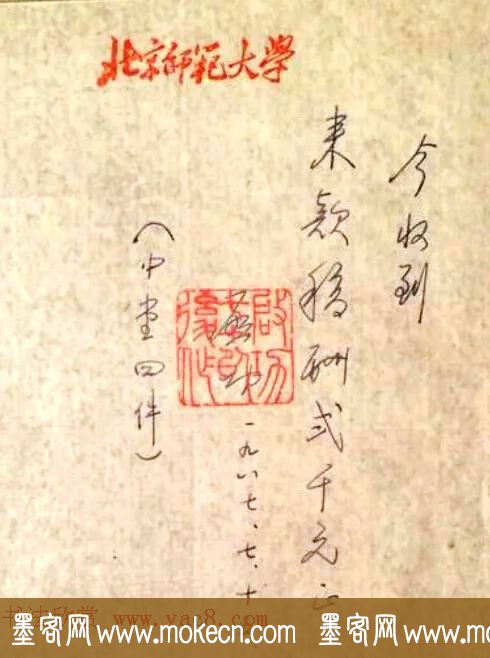 北京师范大学
今收到
来款稿酬弍千元正
启功
一九八七、七、十
（中堂四件）
书法欣赏 www.yac8.com
墨客网 www.mokecn.com 墨客网 www.mokecn.com